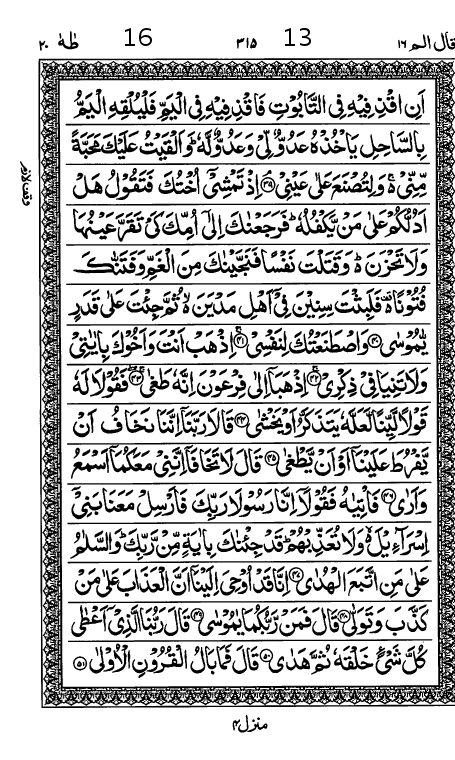 قال الم ۱۶ ۳۱۵ 13 16 طٰهٰ ۲۰
اَنِ اقْذِفِیْهِ فِی التَّابُوْتِ فَاقْذِفِیْهِ فِی الْیَمِّ فَلْیُلْقِهِ الْیَمُّ
بِالسَّاحِلِ یَاْخُذْهُ عَدُوٌّ لِّیْ وَعَدُوٌّ لَّهٗ ؕ وَاَلْقَیْتُ عَلَیْكَ مَحَبَّةً
مِّنِّیْ ۚ۬ وَلِتُصْنَعَ عَلٰی عَیْنِیْ ۘ﴿۳۹﴾ اِذْ تَمْشِیْۤ اُخْتُكَ فَتَقُوْلُ هَلْ
وقف لازم
اَدُلُّكُمْ عَلٰی مَنْ یَّكْفُلُهٗ ؕ فَرَجَعْنٰكَ اِلٰۤی اُمِّكَ كَیْ تَقَرَّ عَیْنُهَا
وَلَا تَحْزَنَ ؕ۬ وَقَتَلْتَ نَفْسًا فَنَجَّیْنٰكَ مِنَ الْغَمِّ وَفَتَنّٰكَ
فُتُوْنًا ۫۬ فَلَبِثْتَ سِنِیْنَ فِیْۤ اَهْلِ مَدْیَنَ ۙ۬ ثُمَّ جِئْتَ عَلٰی قَدَرٍ
یّٰمُوْسٰی ﴿۴۰﴾ وَاصْطَنَعْتُكَ لِنَفْسِیْ ۚ﴿۴۱﴾ اِذْهَبْ اَنْتَ وَاَخُوْكَ بِاٰیٰتِیْ
وَلَا تَنِیَا فِیْ ذِكْرِیْ ۚ﴿۴۲﴾ اِذْهَبَاۤ اِلٰی فِرْعَوْنَ اِنَّهٗ طَغٰی ۚۖ﴿۴۳﴾ فَقُوْلَا لَهٗ
قَوْلًا لَّیِّنًا لَّعَلَّهٗ یَتَذَكَّرُ اَوْ یَخْشٰی ﴿۴۴﴾ قَالَا رَبَّنَاۤ اِنَّنَا نَخَافُ اَنْ
یَّفْرُطَ عَلَیْنَاۤ اَوْ اَنْ یَّطْغٰی ﴿۴۵﴾ قَالَ لَا تَخَافَاۤ اِنَّنِیْ مَعَكُمَاۤ اَسْمَعُ
وَاَرٰی ﴿۴۶﴾ فَاْتِیٰهُ فَقُوْلَاۤ اِنَّا رَسُوْلَا رَبِّكَ فَاَرْسِلْ مَعَنَا بَنِیْۤ
اِسْرَآءِیْلَ ۙ۬ وَلَا تُعَذِّبْهُمْ ؕ قَدْ جِئْنٰكَ بِاٰیَةٍ مِّنْ رَّبِّكَ ؕ وَالسَّلٰمُ
عَلٰی مَنِ اتَّبَعَ الْهُدٰی ﴿۴۷﴾ اِنَّا قَدْ اُوْحِیَ اِلَیْنَاۤ اَنَّ الْعَذَابَ عَلٰی مَنْ
كَذَّبَ وَتَوَلّٰی ﴿۴۸﴾ قَالَ فَمَنْ رَّبُّكُمَا یٰمُوْسٰی ﴿۴۹﴾ قَالَ رَبُّنَا الَّذِیْۤ اَعْطٰی
كُلَّ شَیْءٍ خَلْقَهٗ ثُمَّ هَدٰی ﴿۵۰﴾ قَالَ فَمَا بَالُ الْقُرُوْنِ الْاُوْلٰی ﴿۵۱﴾
منزل ۴